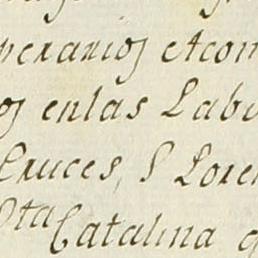 perarios Acom
os enlas Lab
Cruces, S Lore
Sta Catalina